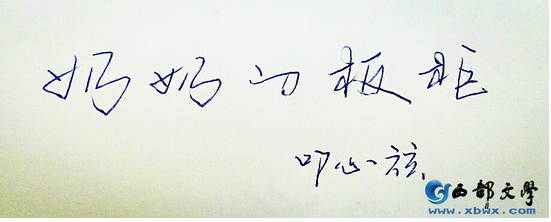 奶奶的板柜
叩心弦
西部文學
www.xbwx.com